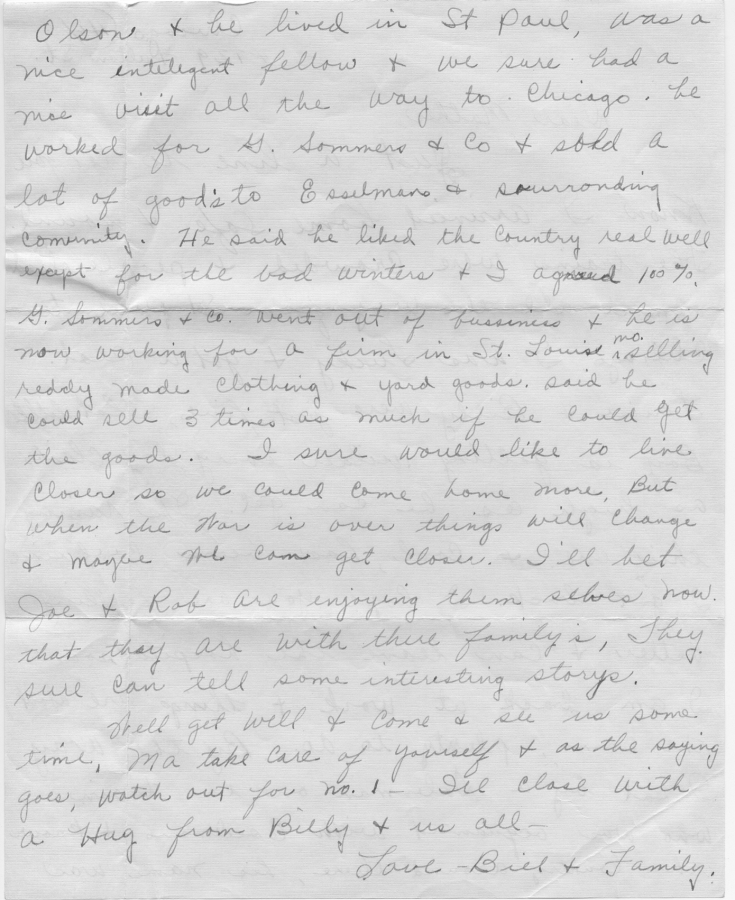 Olson & he lived in St Paul, was a
nice intelegent fellow & we sure had a
nice visit all the way to Chicago. he
worked for G. Sommers & Co & sold a
lot of goods to Esselmans & sourronding
comunity. He said he liked the Country real well
except for the bad winters & I agreed 100%.
G. Sommers & Co. went out of bussiness & he is
now working for a firm in St. Louise mo. selling
reddy made clothing & yard goods. said he
could sell 3 times as much if he could get
the goods. I sure would like to live
closer so we could come home more, But
when the War is over things will change
& mayve we can get closer. I'll bet
Joe & Rob are enjoying them selves now.
that they are with there family's, They
sure can tell some interesting storys.
Well get well & come & see us some
time, Ma take care of yourself & as the saying
goes, watch out for no. 1 - Ill close with
a Hug from Billy & us all -
Love - Bill & Family.